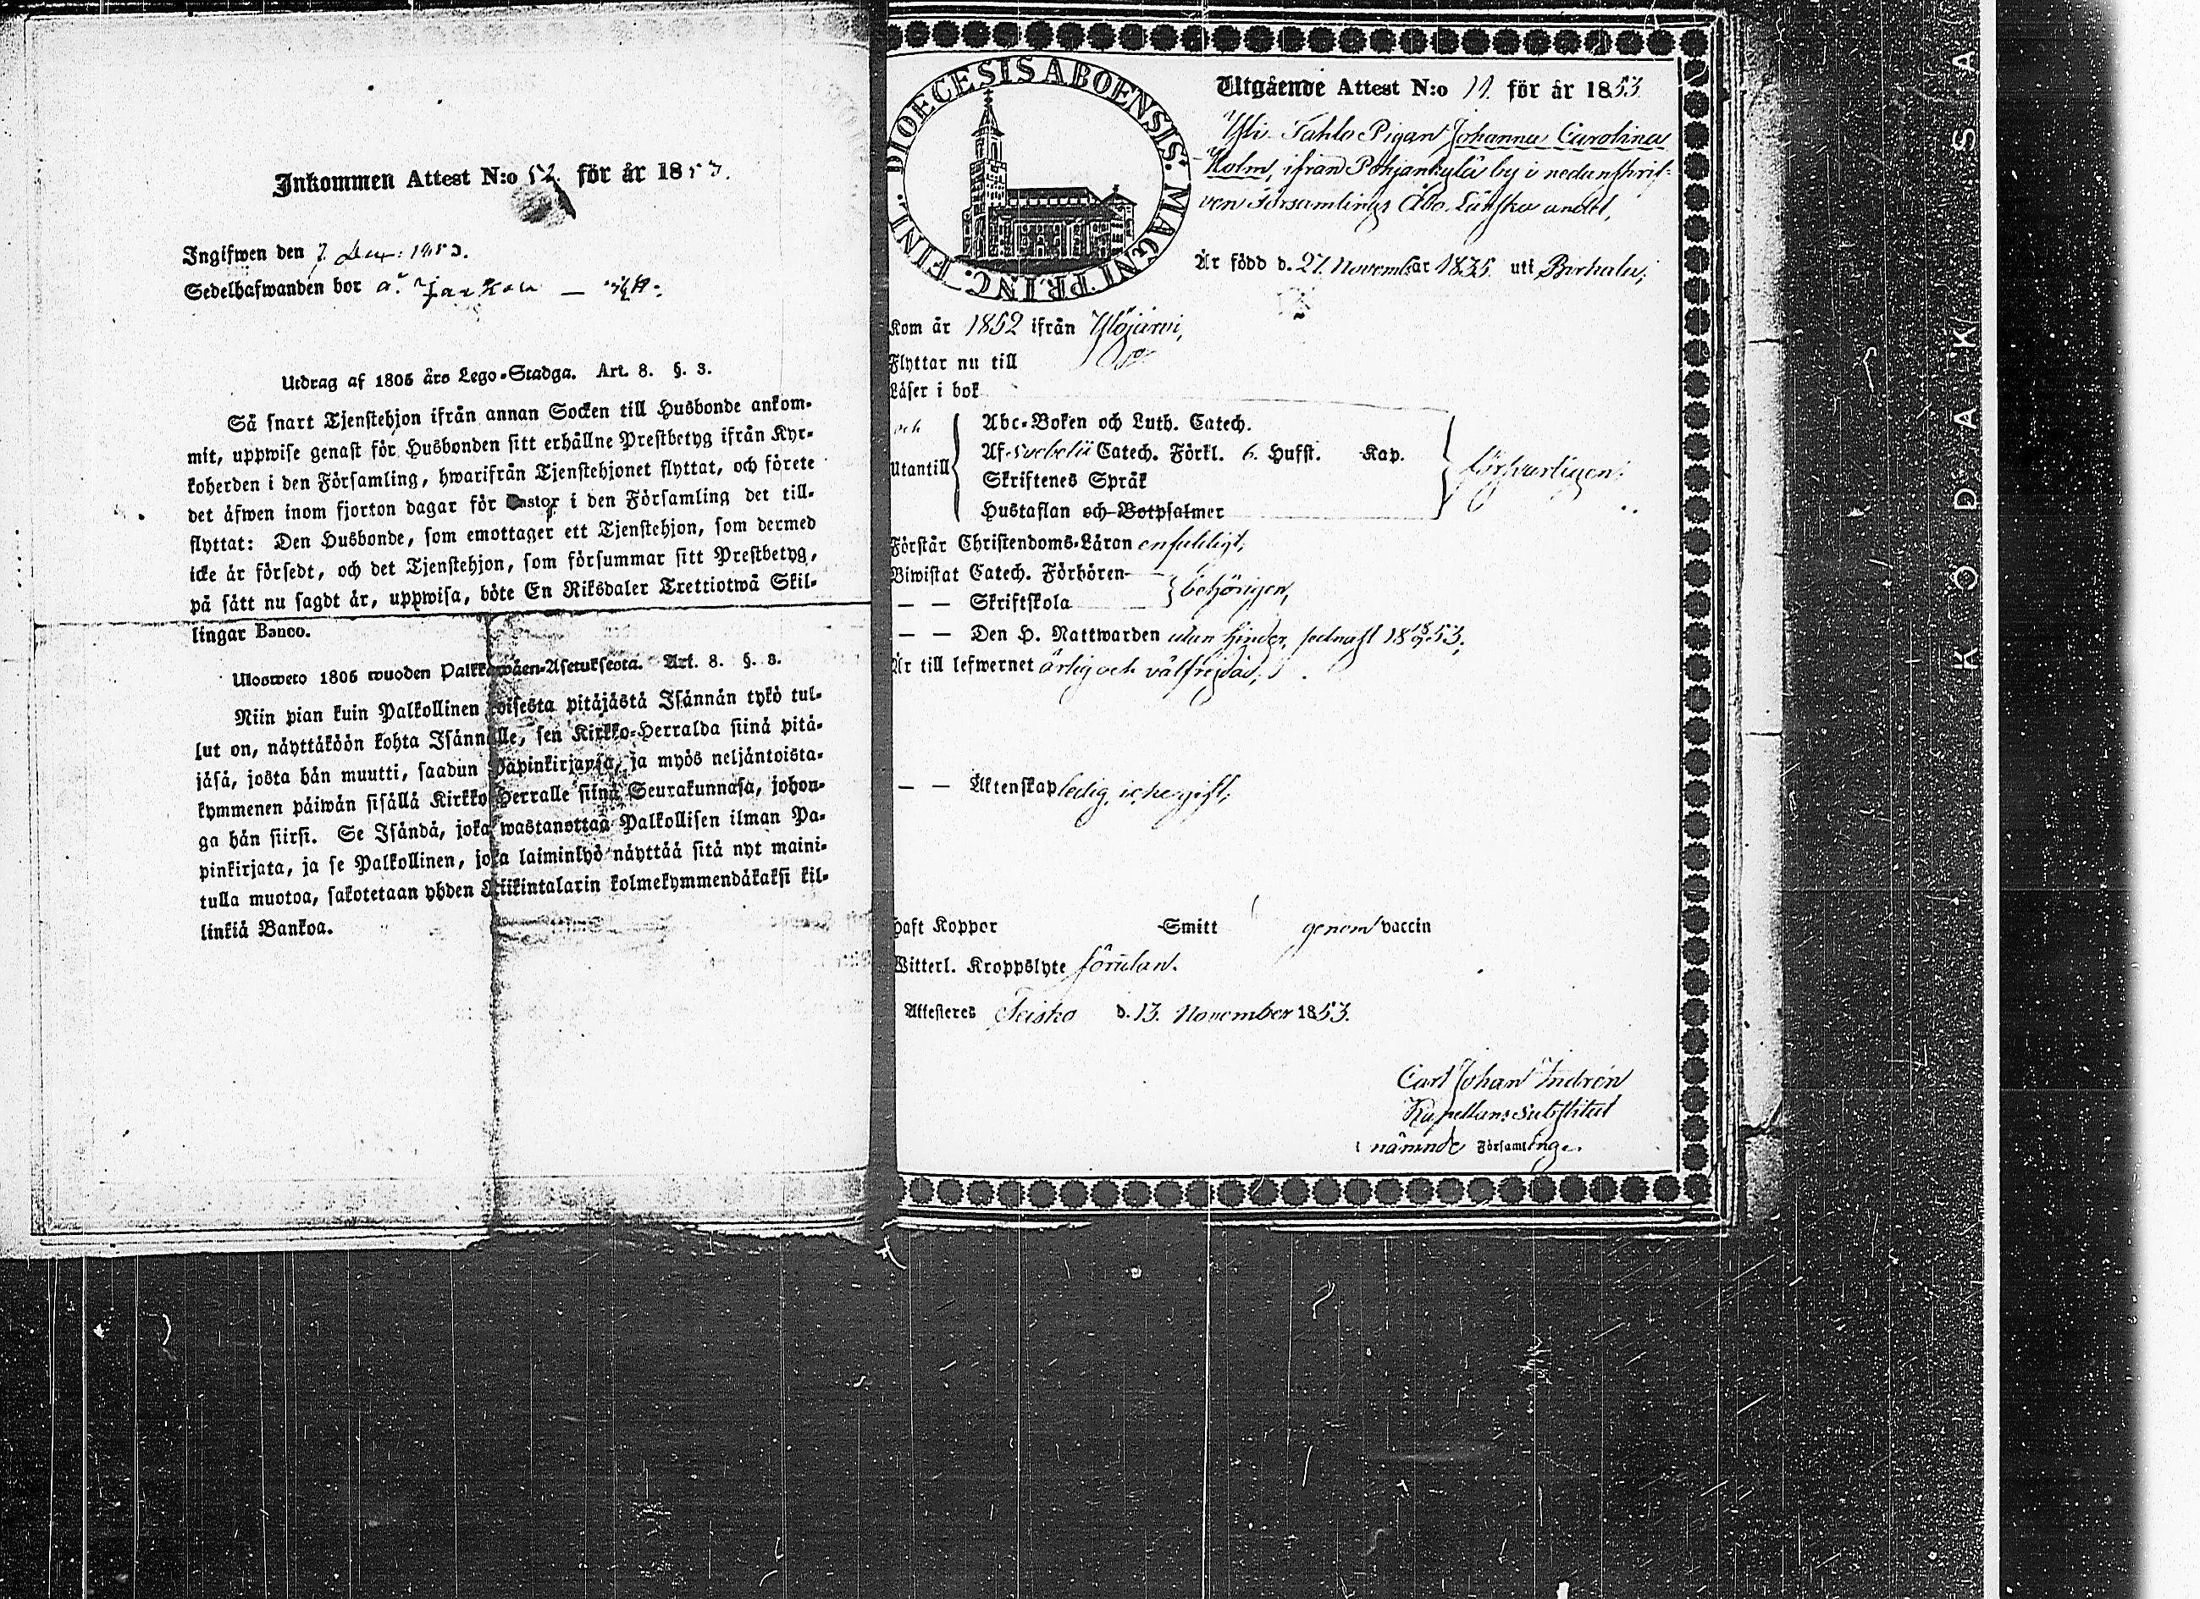 Inkommen Attest N:o 52. för år 1853.
Ingifwen den 7 Dec: 1853.
Sedelhafwanden bor å
Utdrag af 1805 års Lego-Stadga. Art. 8. §. 3.
Så snart Tjenstehjon ifrån annan Socken till Husbonde ankom-
mit, uppwise genast för Husbonden sitt erhållne Prestbetyg ifrån Kyr-
koherden i den Församling, hwarifrån Tjenstehjonet flyttat, och förete
det äfwen inom fjorton dagar för Pastor i den Församling det till-
flyttat: Den Husbonde, som emottager ett Tjenstehjon, som dermed
icke är försedt, och det Tjenstehjon, som försummar sitt Prestbetyg,
på sätt nu sagdt är, uppwisa, böte En Riksdaler Trettiotwå Skil-
lingar Banco.
Ulosweto 1805 wuoden Palkkawäen-Asetuksesta. Art. 8. §. 3.
Niin pian kuin Palkollinen toisesta pitäjästä Isännän tykö tul-
lut on, näyttäköön kohta Isännälle, sen Kirkko-Herralda siinä pitä-
jäsä, josta hän muutti, saadun Papinkirjansa, ja myös neljäntoista-
kymmenen päiwän sisällä Kirkko Herralle siinä Seurakunnasa, johon-
ga hän siirsi. Se Isändä, joka wastanottaa Palkollisen ilman Pa-
pinkirjata, ja se Palkollinen, joka laiminlyö näyttää sitä nyt maini-
tulla muotoa, sakotetaan yhden Riikintalarin kolmekymmendäkaksi kil-
linkiä Bankoa.
DIOECESIS ABOENSIS. MAGNI PRINC. FINL.
Utgående Attest N:o 11. för år 1853
Yli Tahlo Pigan Johanna Carolina
Holm, ifrån Pohjankylä by i nedanskrif-
ven Församlings Åbo Länska andel,
Är född d. 27. Novemb. år 1835. uti Birkala;
Kom år 1852 ifrån Ylöjärvi,
Flyttar nu till
Läser i bok
och
Abc-Boken och Luth. Catech.
Af Svebelii Catech. Förkl. 6. Hufst. Kap.
Utantill
Skriftenes Språk
försvarligen;
Hustaflan och Botpsalmer
Förstår Christendoms-Läran enfaldigt,
Biwistat Catech. Förhören
— — Skriftskola
behörigen,
— — Den H. Nattwarden utan hinder, sednast 18 18/9 53,
Är till lefwernet ärlig och välfrejdad,
— — Äktenskap ledig, icke gift,
Haft Koppor Smitt genom vaccin
Witterl. Kroppslyte förutan.
Attesteres Teisko d. 13. November 1853.
Carl Johan Indrén
Kapellans Substitut
i nämnde Församling.
KODAK SA